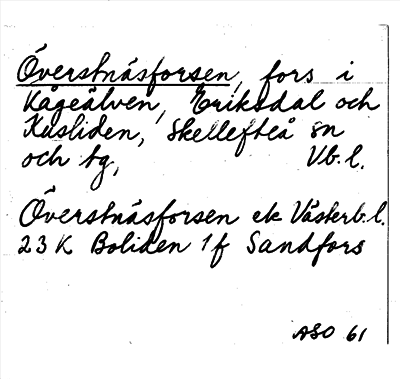 Överstnäsforsen, fors i
Kågeälven, Eriksdal och
Kusliden, Skellefteå sn
och tg, Vb. l.
Överstnäsforsen ek Västerb. l.
23 K Boliden 1f Sandfors
ASO 61